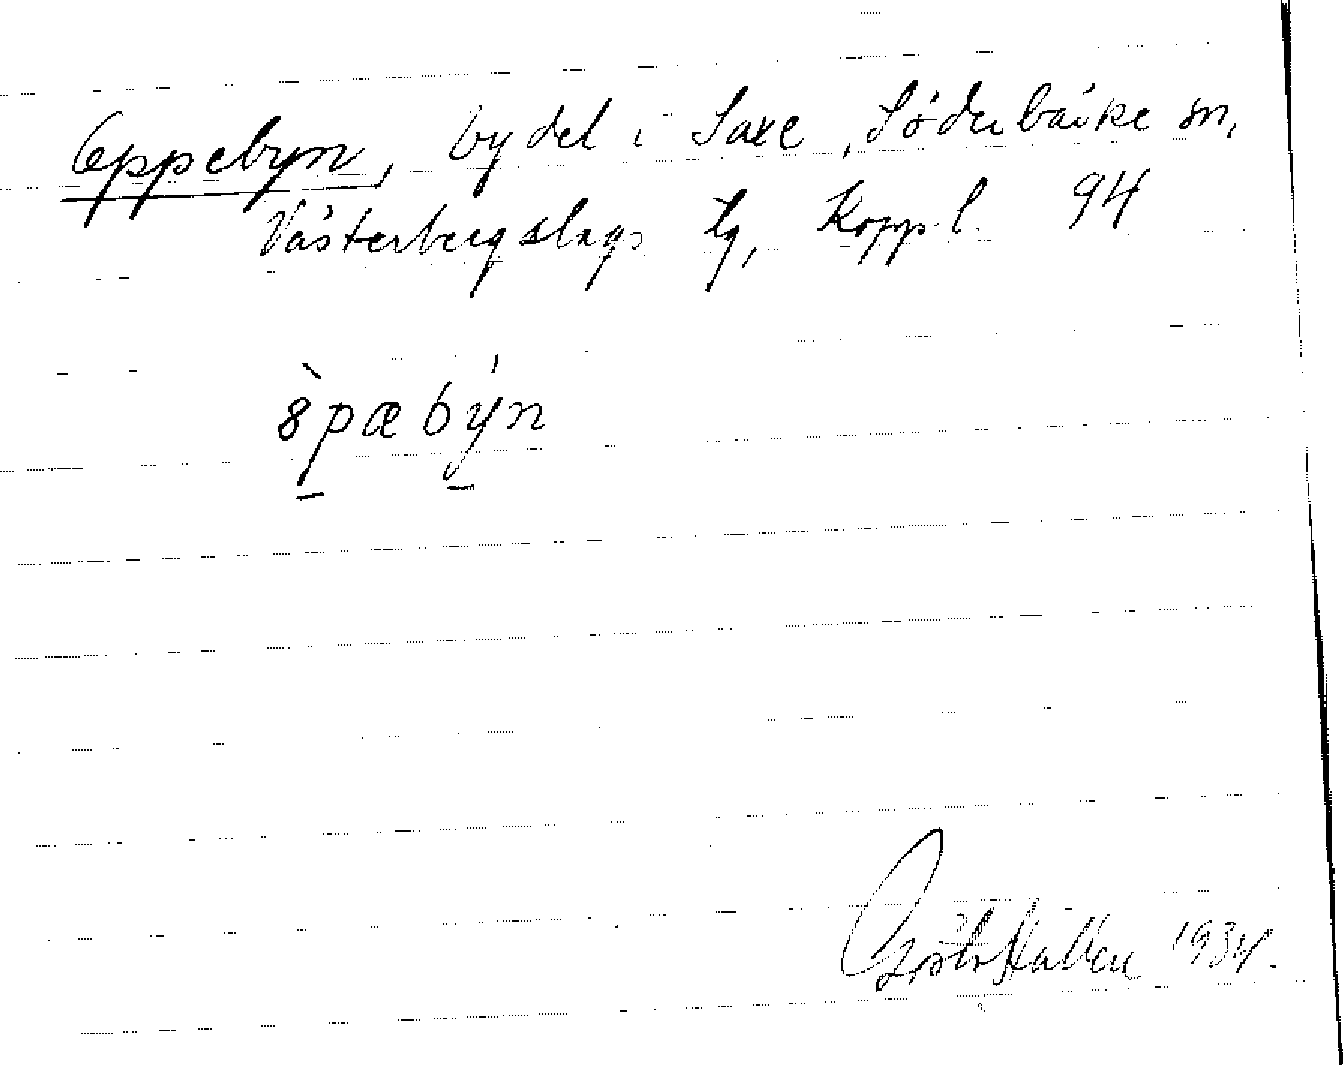 Oppebyn, bydel i Saxe, Söderbärke sn,
Västerbergslags tg, Koppl. 94
Gösta Hallén 1934.